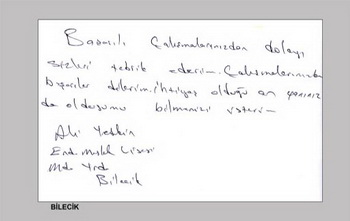 Başarılı Çalışmalarınızdan dolayı
sizleri tebrik ederim. Çalışmalarınızda
başarılar dilerim. ihtiyaç olduğu an yanınız
da olduğumu bilmenizi isterim
Ali Yetkin
End. Meslek Lisesi
Md. Yrd
Bilecik
BİLECİK